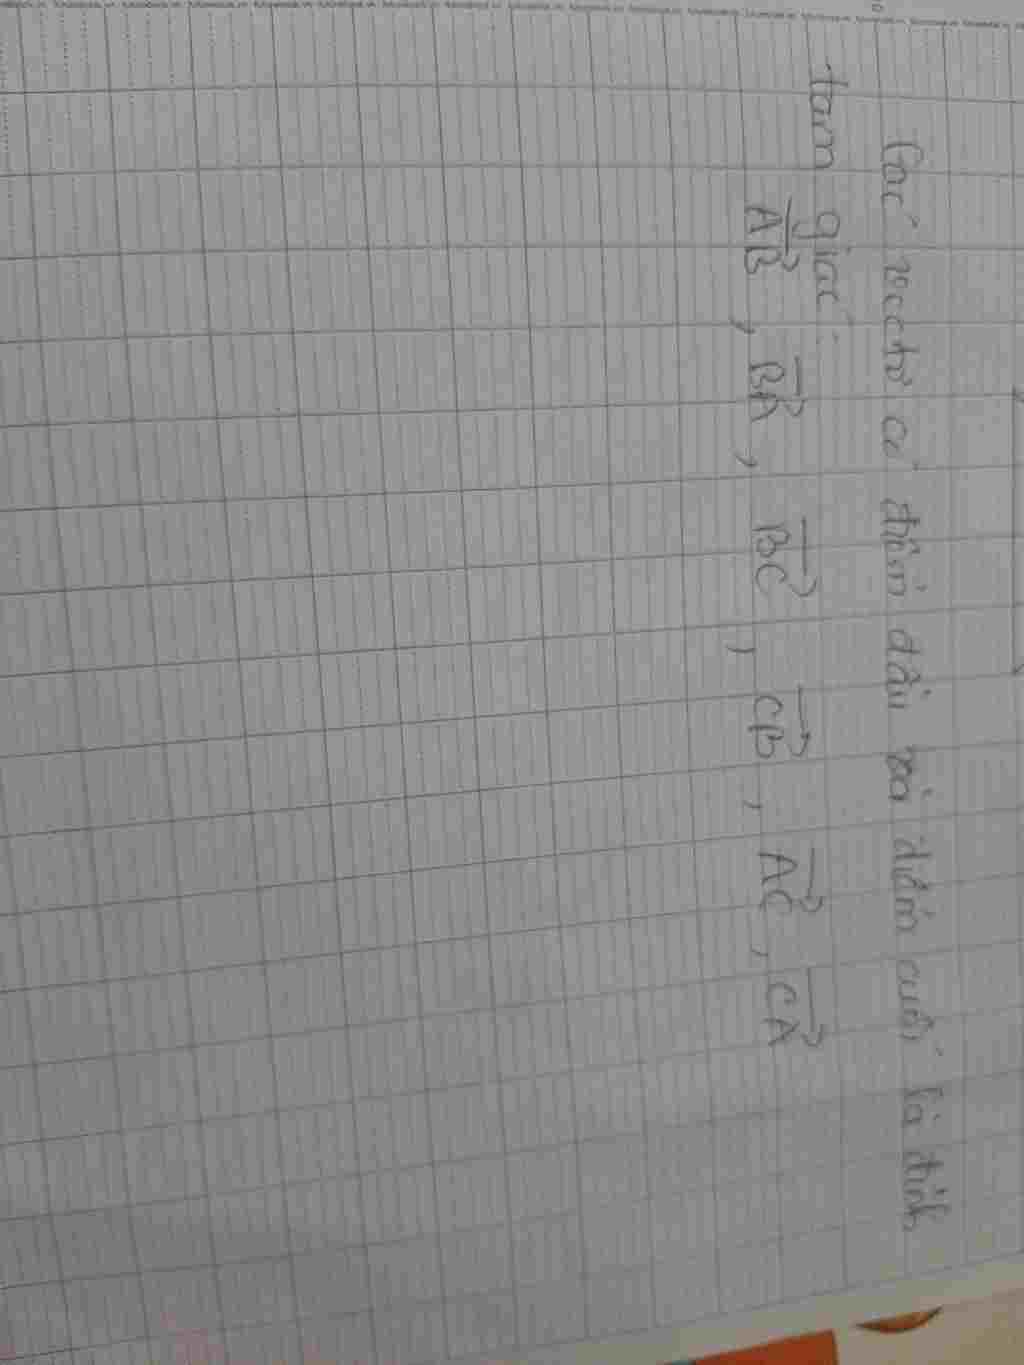 Các vectơ có điểm đầu và điểm cuối là đỉnh
tam giác :
$\overrightarrow{AB}$, $\overrightarrow{BA}$, $\overrightarrow{BC}$, $\overrightarrow{CB}$, $\overrightarrow{AC}$, $\overrightarrow{CA}$